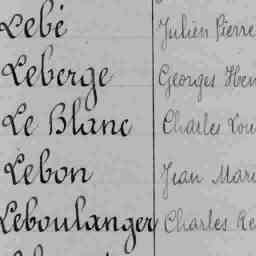 Lebé Julien Pierre
Leberge Georges Hen
Le Blanc Charles Lou
Lebon Jean Mari
Leboulanger Charles Re